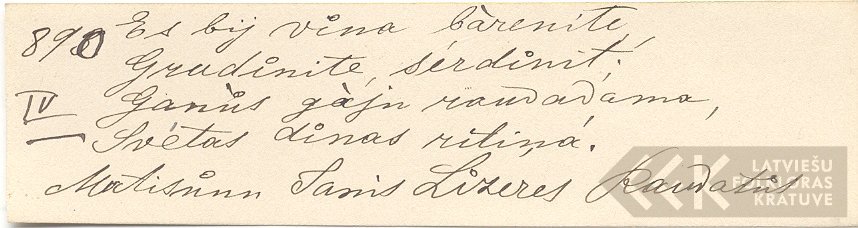 890 Es bij vina bārenite,
Grudinite, sērdinit;
IV Ganùs gàjn raudadama,
Svētas dinas ritiņá.
Matisunn Lizeres
LATVIEŠU
FOLKLORAS
KRĀTUVE